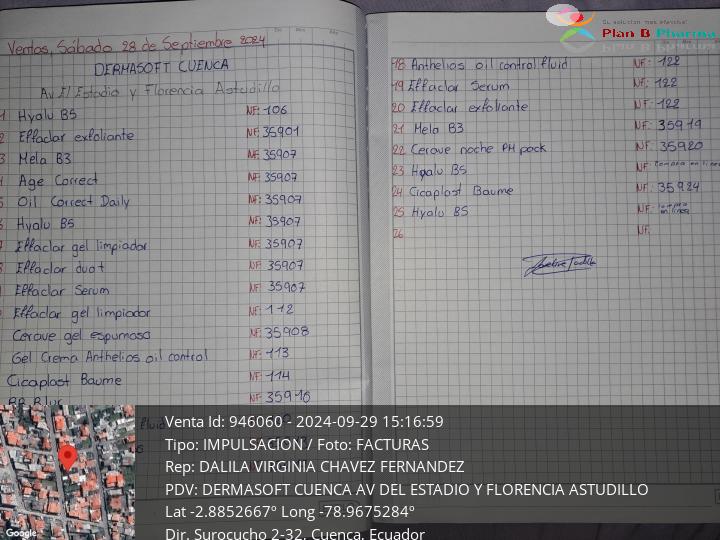 Ventas, Sábado 28 de Septiembre 2024
DERMASOFT CUENCA
Av El Estadio y Florencia Astudillo
1 Hyalu B5 NF: 106
2 Effaclar exfoliante NF: 35901
3 Mela B3 NF: 35907
Age Correct NF: 35907
Oil Correct Daily NF: 35907
Hyalu B5 NF: 35907
Effaclar gel limpiador NF: 35907
Effaclar duo+ NF: 35907
Effaclar Serum NF: 35907
Effaclar gel limpiador NF: 112
Cerave gel espumoso NF: 35908
Gel Crema Anthelios oil control NF: 113
Cicaplast Baume NF: 114
BB Blur NF: 35916
fluid
18 Anthelios oil control fluid NF: 122
19 Effaclar Serum NF: 122
20 Effaclar exfoliante NF: 122
21 Mela B3 NF: 35919
22 Cerave noche PM pack NF: 35920
23 Hyalu B5 NF: compra en linea
24 Cicaplast Baume NF: 35924
25 Hyalu B5 NF: compra en linea
26 NF:
Su solución más efectiva!
Plan B Pharma
Venta Id: 946060 - 2024-09-29 15:16:59
Tipo: IMPULSACION / Foto: FACTURAS
Rep: DALILA VIRGINIA CHAVEZ FERNANDEZ
PDV: DERMASOFT CUENCA AV DEL ESTADIO Y FLORENCIA ASTUDILLO
Lat -2.8852667º Long -78.9675284º
Dir. Surocucho 2-32, Cuenca, Ecuador
Google